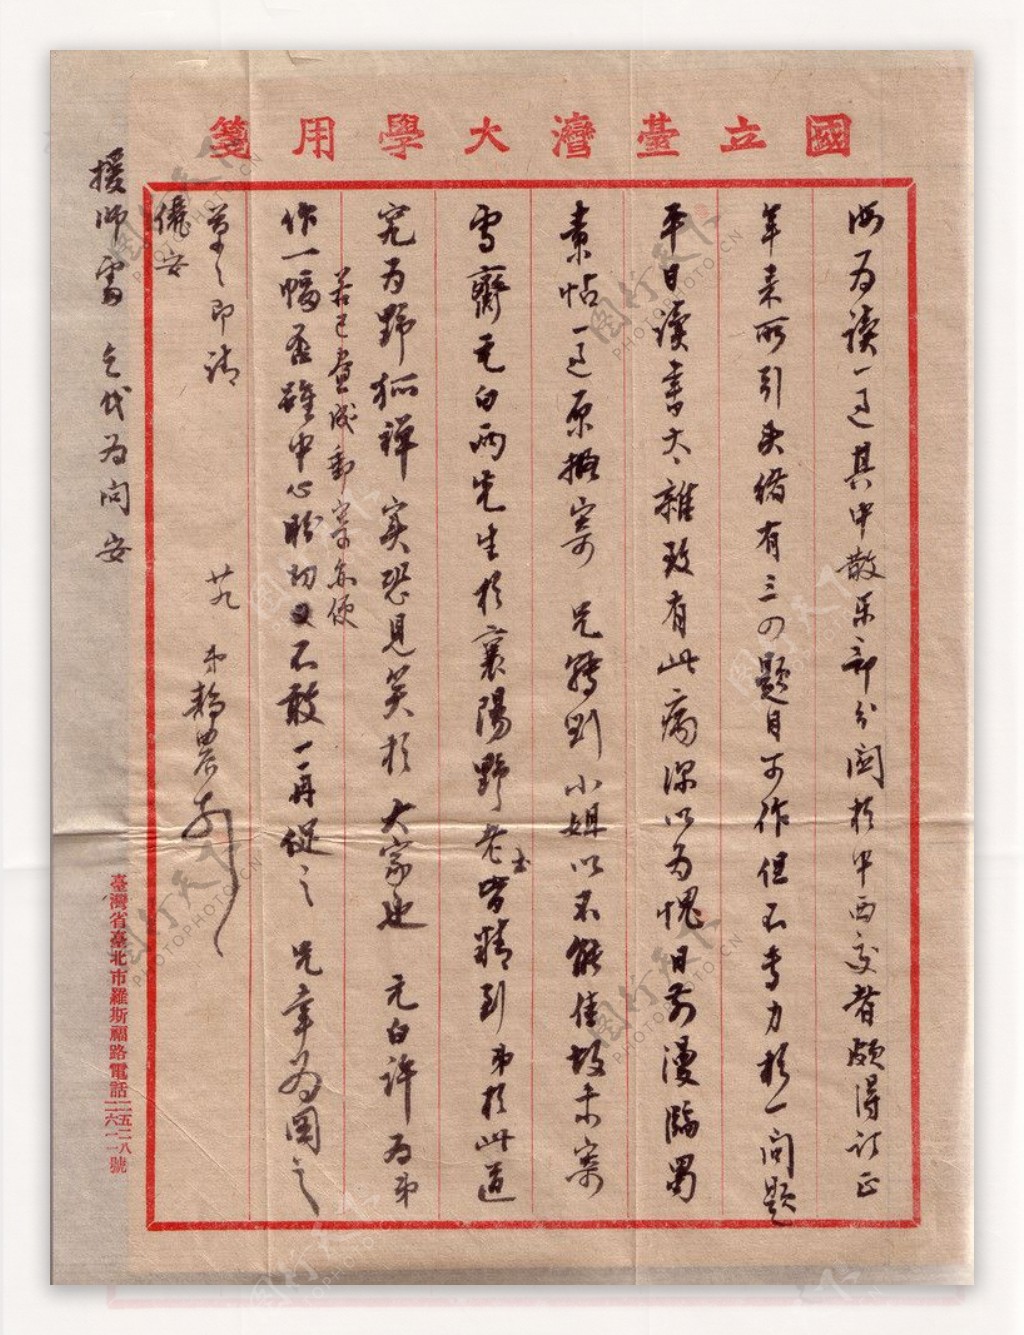 國立臺灣大學用箋
為讀一過其中散樂部分關於中西交者頗得訂正
年來所引史備有三四題目可作但不專力於一問題
平日讀書太雜致有此病深以為愧日前漫臨蜀
素帖一過原擬寄 兄轉劉小姐以不能佳故未寄
雪齋元白兩先生於襄陽野老書皆精到弟於此道
究為野狐禪實恐見笑於大家也 元白許為弟
若已畫成郵寄亦便
作一幅画雖中心盼切又不敢一再促之 兄幸為圖之
草草即請
儷安
弟靜農
援師處 乞代為問安
臺灣省臺北市羅斯福路電話二五二八 二六一一號